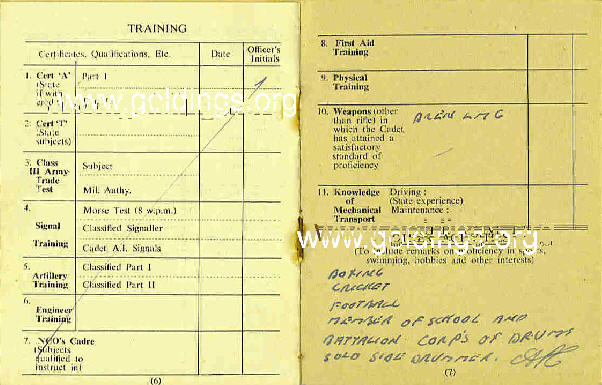 TRAINING
Certificates, Qualifications, Etc.
Date
Officer's
Initials
1. Cert 'A'
(State
if with
Part I
2. Cert 'T'
(State
subject(s)
3. Class
III Army
Trade
Test
Subject
Mil. Authy.
4.
Signal
Training
Morse Test (8 w.p.m.)
Classified Signaller
Cadet A.I. Signals
5.
Artillery
Training
Classified Part I
Classified Part II
6.
Engineer
Training
7. NCO's Cadre
(Subjects
qualified to
instruct in)
(6)
www.goldings.org
8. First Aid
Training
9. Physical
Training
10. Weapons (other
than rifle) in
which the Cadet
has attained a
satisfactory
standard of
proficiency
BREN LMG
11. Knowledge
of
Mechanical
Transport
Driving :
(State experience)
Maintenance :
www.goldings.org
(To include remarks on proficiency in sports,
swimming, hobbies and other interests)
BOXING
CRICKET
FOOTBALL
MEMBER OF SCHOOL AND
BATTALION CORP'S OF DRUMS
SOLO SIDE DRUMMER.
(7)